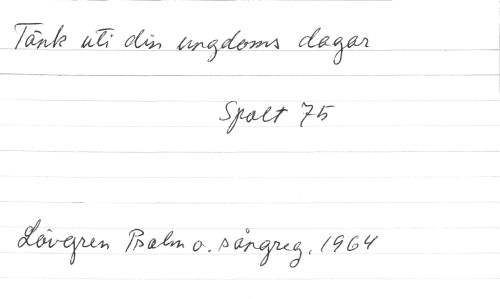 Tänk uti din ungdoms dagar
Spalt 75
Lövgren Psalm o. sångreg. 1964